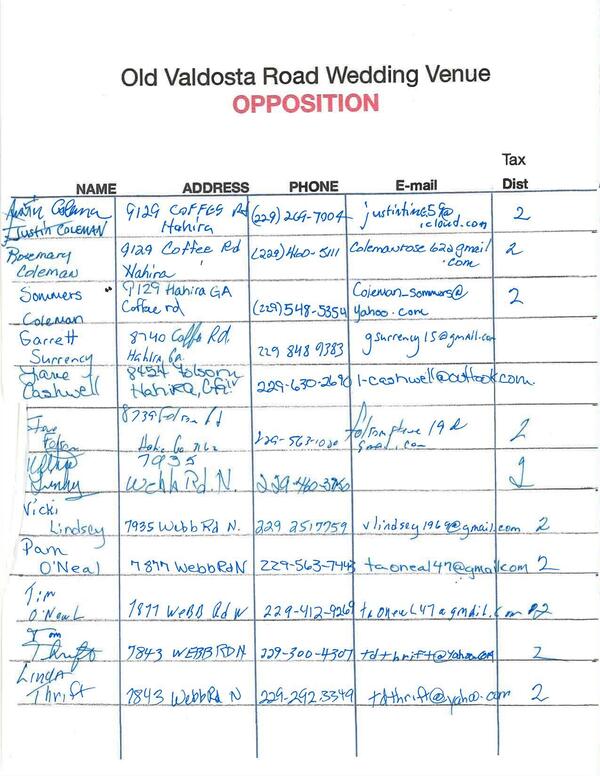 Old Valdosta Road Wedding Venue
OPPOSITION
Tax
NAME ADDRESS PHONE E-mail Dist
Justin Coleman 9129 COFFEE Rd (229) 269-7004 justintime59@ 2
Justin COLEMAN Hahira icloud.com
Rosemary 9129 Coffee Rd (229) 460-5111 Colemanrose62@gmail 2
Coleman Hahira .com
Sommers 9129 Hahira GA Coleman_Sommers@ 2
Coleman Coffee rd (229) 548-5354 Yahoo.com
Garrett 8740 Coffee Rd. gsurrency15@gmail.com
Surrency Hahira, Ga. 229 848 9383
8454 Folsom
Cashwell Hahira, GA 229-630-2690 l-cashwell@outlook.com
8739 Folsom Rd
Folsom 229-563- 2
7935
Webb Rd N. 229-460-3750 2
Vicki
Lindsey 7935 Webb Rd N. 229 251 7759 vlindsey1969@gmail.com 2
Pam
O'Neal 7877 Webb Rd N 229-563-7443 taoneal47@gmail.com 2
Tim
O'NEAL 7877 WEBB Rd N 229-412-9269 taoneal47@gmail.com 2
Tom
Thrift 7843 WEBB RD N 229-300-4307 tdthrift@yahoo.com 2
LINDA
Thrift 7843 Webb Rd N 229-292 3349 tdthrift@yahoo.com 2